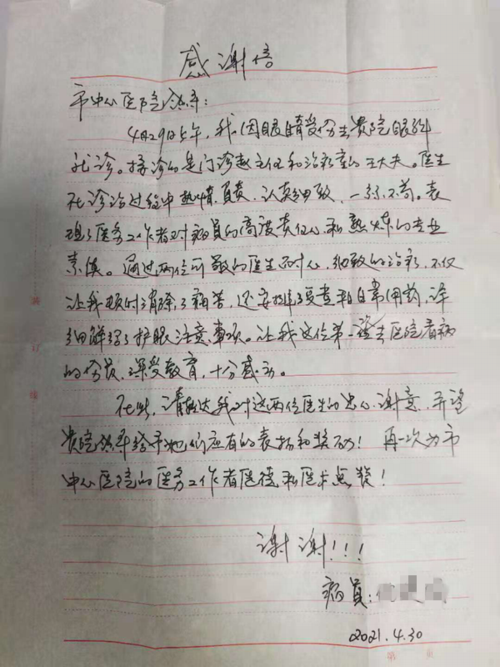 感谢信
市中心医院领导：
4月29日上午，我因眼睛受伤去贵院眼科
就诊。接诊的是门诊赵主任和治疗室的王大夫。医生
在诊治过程中热情负责，认真细致，一丝不苟。表
现了医务工作者对病员的高度责任心和熟炼的专业
素质。通过两位可敬的医生耐心、细致的治疗，不仅
让我顿时消除了痛苦，还安排了复查和日常用药，详
细解释了护眼注意事项。让我这位第一次去医院看病
的伤员，深受教育，十分感动。
在此，请转达我对这两位医生的忠心谢意，并望
贵院领导给予她们应有的表扬和奖励！再一次为市
中心医院的医务工作者医德和医术点赞！
谢谢！！！
病员：
2021.4.30